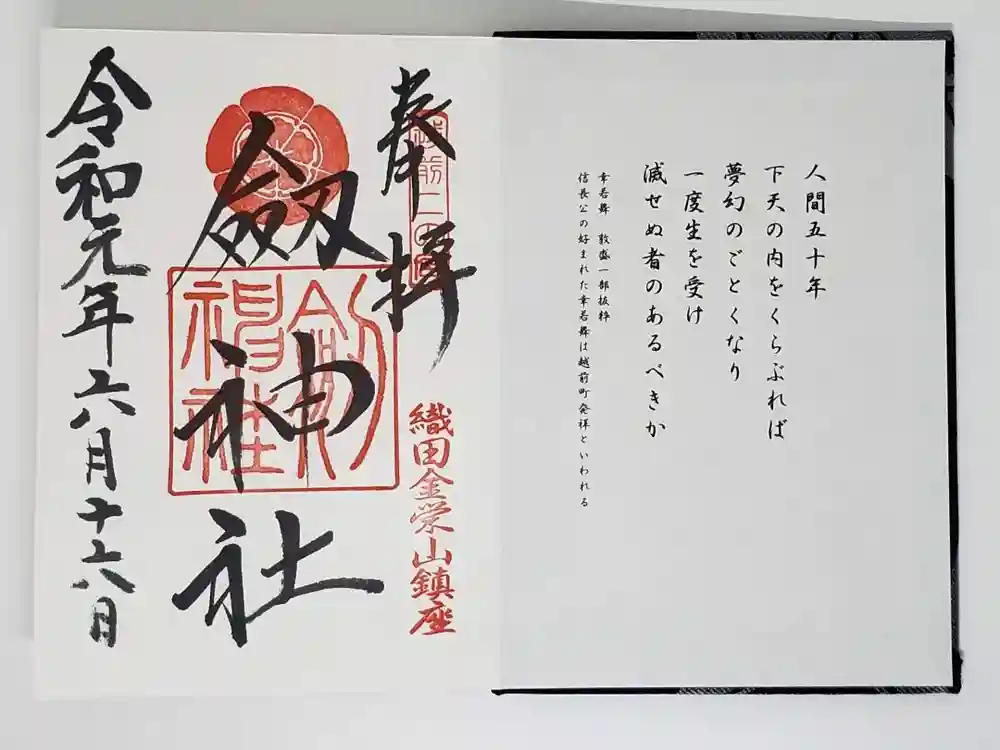 人間五十年
下天の内をくらぶれば
夢幻のごとくなり
一度生を受け
滅せぬ者のあるべきか
幸若舞 敦盛一部抜粋
信長公の好まれた幸若舞は越前町発祥といわれる
奉拝
越前二の宮
織田金栄山鎮座
劔神社
劔神社
令和元年六月十六日